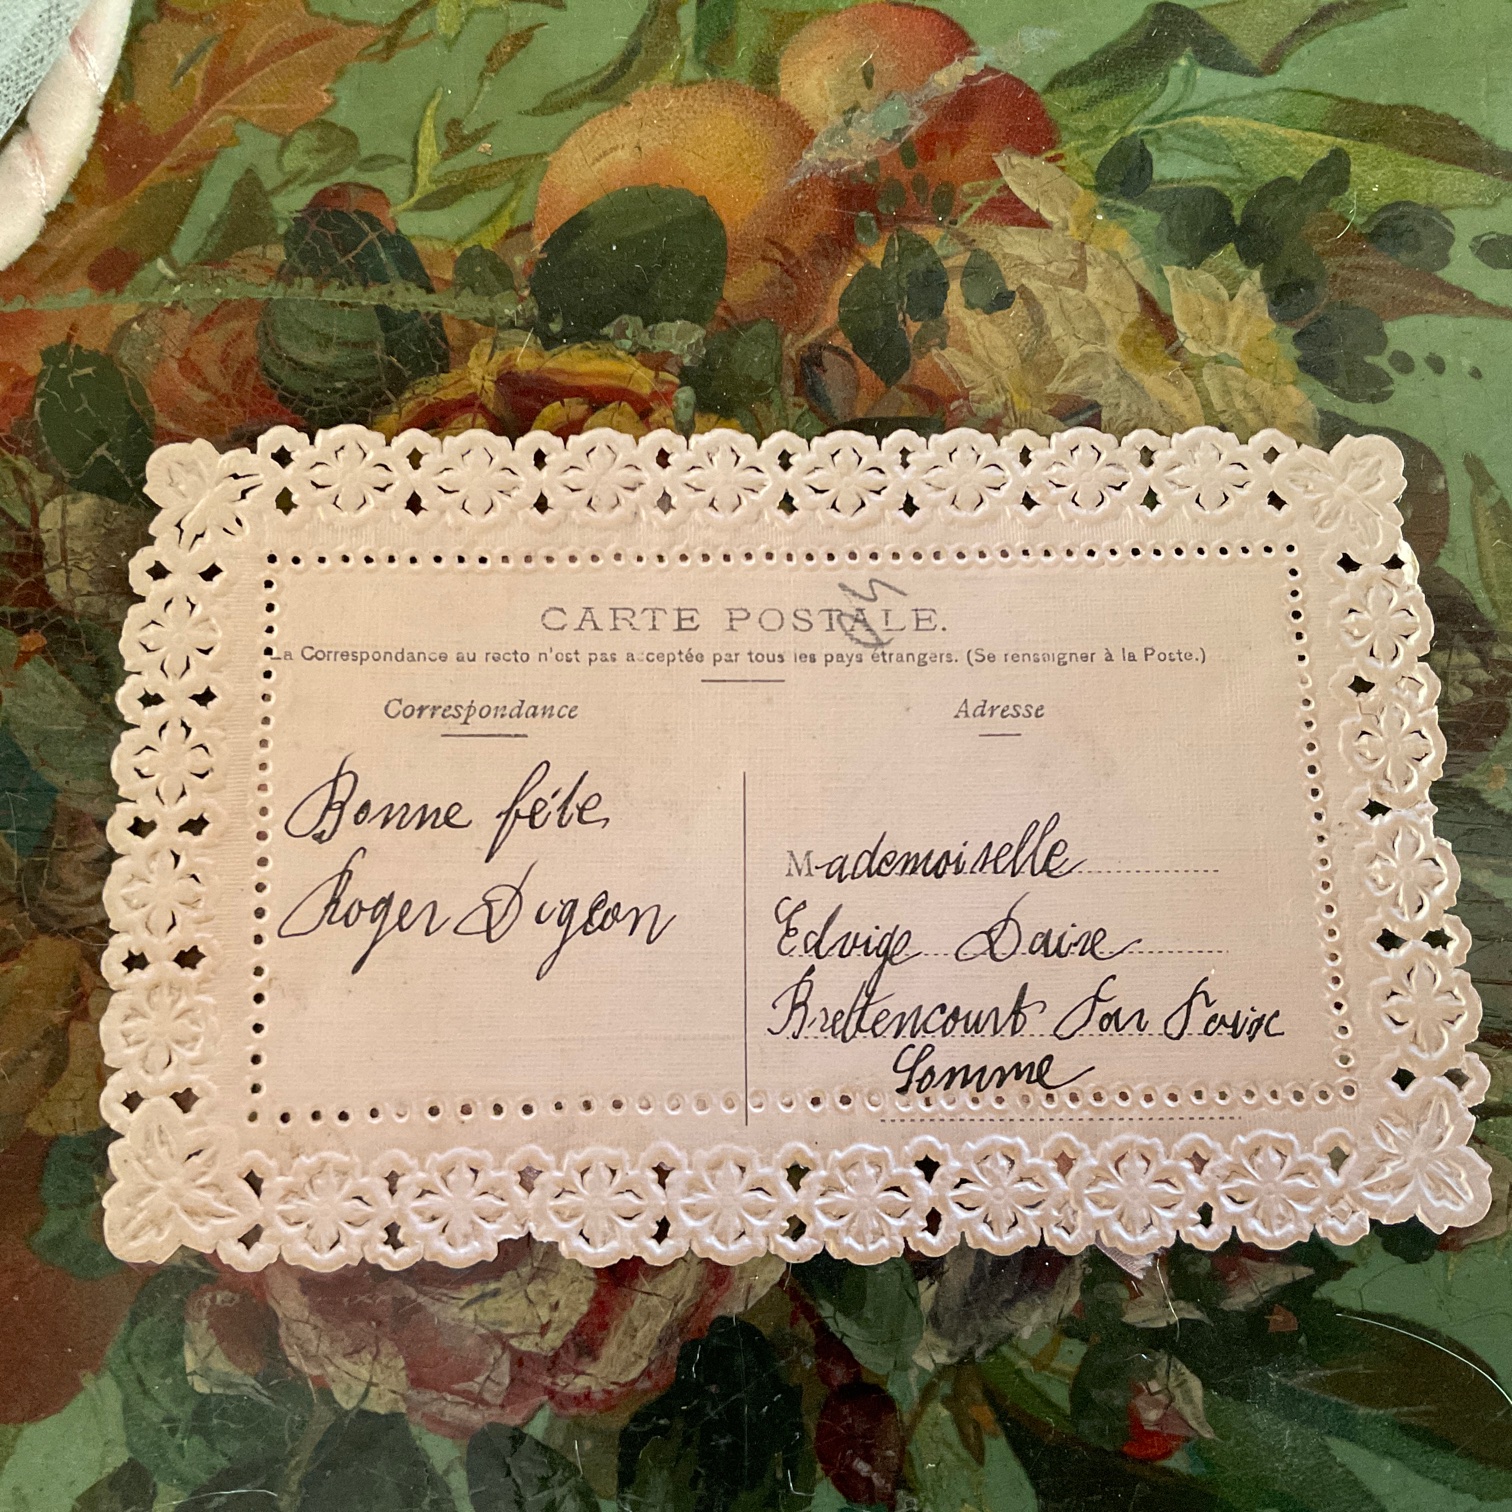 CARTE POSTALE.
La Correspondance au recto n'est pas acceptée par tous les pays étrangers. (Se renseigner à la Poste.)
Correspondance
Bonne féte
Roger Digeon
Adresse
Mademoiselle
Edvige Daire
Brettencourt Par Poix
Somme